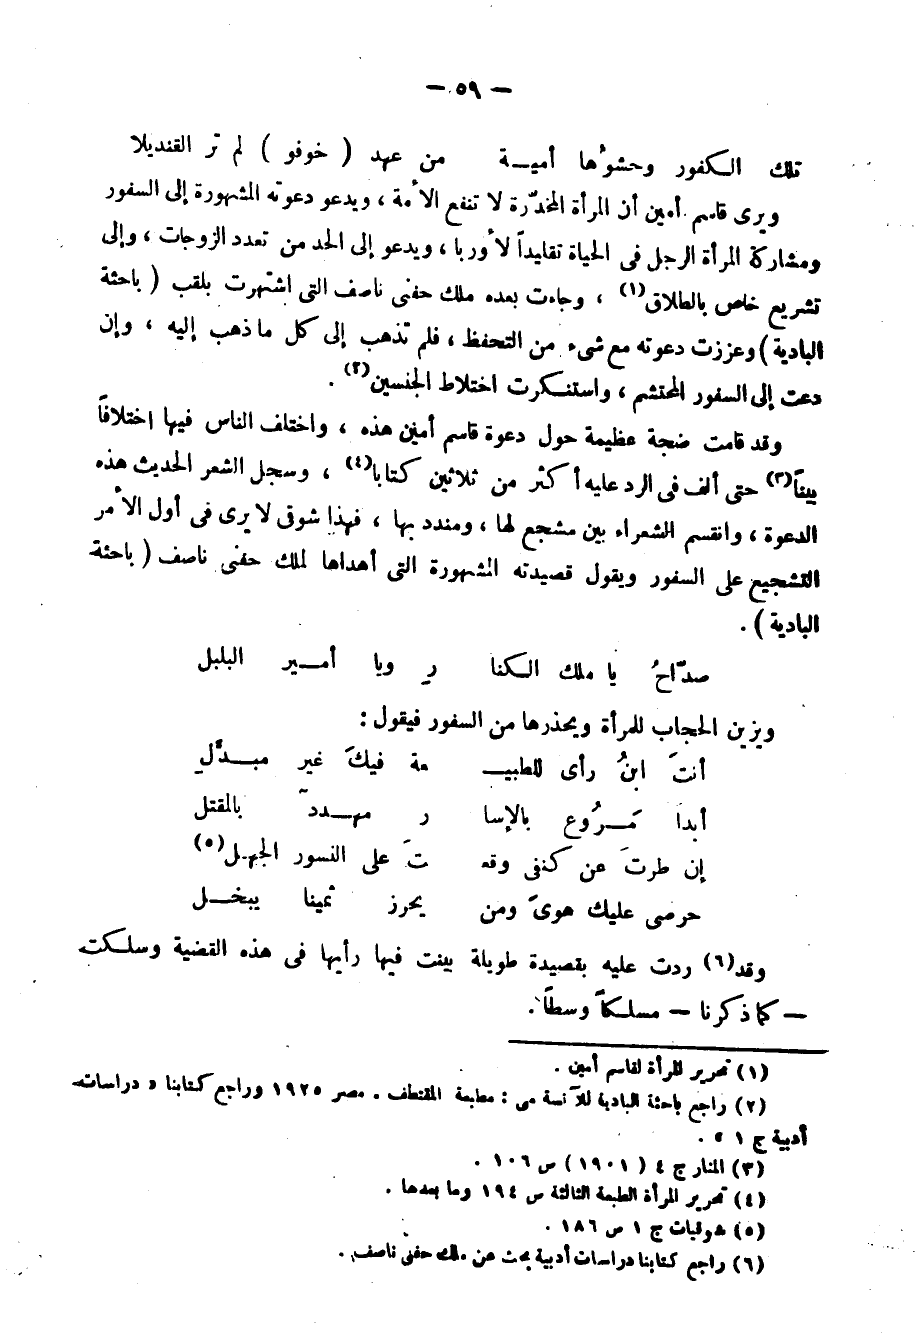 — ٥٩ —
تلك الكفور وحشوُها أميـة من عهد ( خوفو ) لم تر القنديلا
ويرى قاسم أمين أن المرأة المخدّرة لا تنفع الأمة ، ويدعو دعوته المشهورة إلى السفور
ومشاركة المرأة الرجل فى الحياة تقليداً لأوربا ، ويدعو إلى الحد من تعدد الزوجات ، وإلى
تشريع خاص بالطلاق(١) ، وجاءت بعده ملك حفنى ناصف التى اشتهرت بلقب ( باحثة
البادية ) وعززت دعوته مع شىء من التحفظ ، فلم تذهب إلى كل ما ذهب إليه ، وإن
دعت إلى السفور المحتشم ، واستنكرت اختلاط الجنسين(٢) .
وقد قامت ضجة عظيمة حول دعوة قاسم أمين هذه ، واختلف الناس فيها إختلافاً
بيناً(٣) حتى ألف فى الرد عليه أكثر من ثلاثين كتابا(٤) ، وسجل الشعر الحديث هذه
الدعوة ، وانقسم الشعراء بين مشجع لها ، ومندد بها ، فهذا شوقى لا يرى فى أول الأمر
التشجيع على السفور ويقول قصيدته المشهورة التى أهداها لملك حفنى ناصف ( باحثة
البادية ) .
صدّاحُ يا ملك الكنا رِ ويا أمـير البلبل
ويزين الحجاب للمرأة ويحذرها من السفور فيقول :
أنتَ ابنُ رأى للطبيـ عة فيكَ غير مبـدَّلِ
أبداً مَـرُوع بالإسا ر مهـدد بالمقتل
إن طرتَ عن كنفى وقعـ تَ على النسور الجهـل(٥)
حرصى عليك هوىً ومن يحرز ثمينا يبخـل
وقد(٦) ردت عليه بقصيدة طويلة بينت فيها رأيها فى هذه القضية وسلكت
— كما ذكرنا — مسلكاً وسطاً .
(١) تحرير المرأة لقاسم أمين .
(٢) راجع باحثة البادية للآنسة مى : مطبعة المقتطف . مصر ١٩٢٥ وراجع كتابنا « دراسات
أدبية ج ١ » .
(٣) المنار ج ٤ ( ١٩٠١ ) ص ١٠٦ .
(٤) تحرير المرأة الطبعة الثالثة ص ١٩٤ وما بعدها .
(٥) شوقيات ج ١ ص ١٨٦ .
(٦) راجع كتابنا دراسات أدبية بحث عن ملك حفنى ناصف .